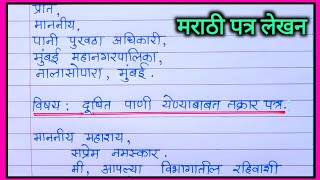 मराठी पत्र लेखन
प्रति,
माननीय,
पाणी पुरवठा अधिकारी,
मुंबई महानगरपालिका,
नालासोपारा, मुंबई.
विषय: दूषित पाणी येण्याबाबत तक्रार पत्र.
माननीय महाराय,
सप्रेम नमस्कार.
मी, आपल्या विभागातील रहिवाशी